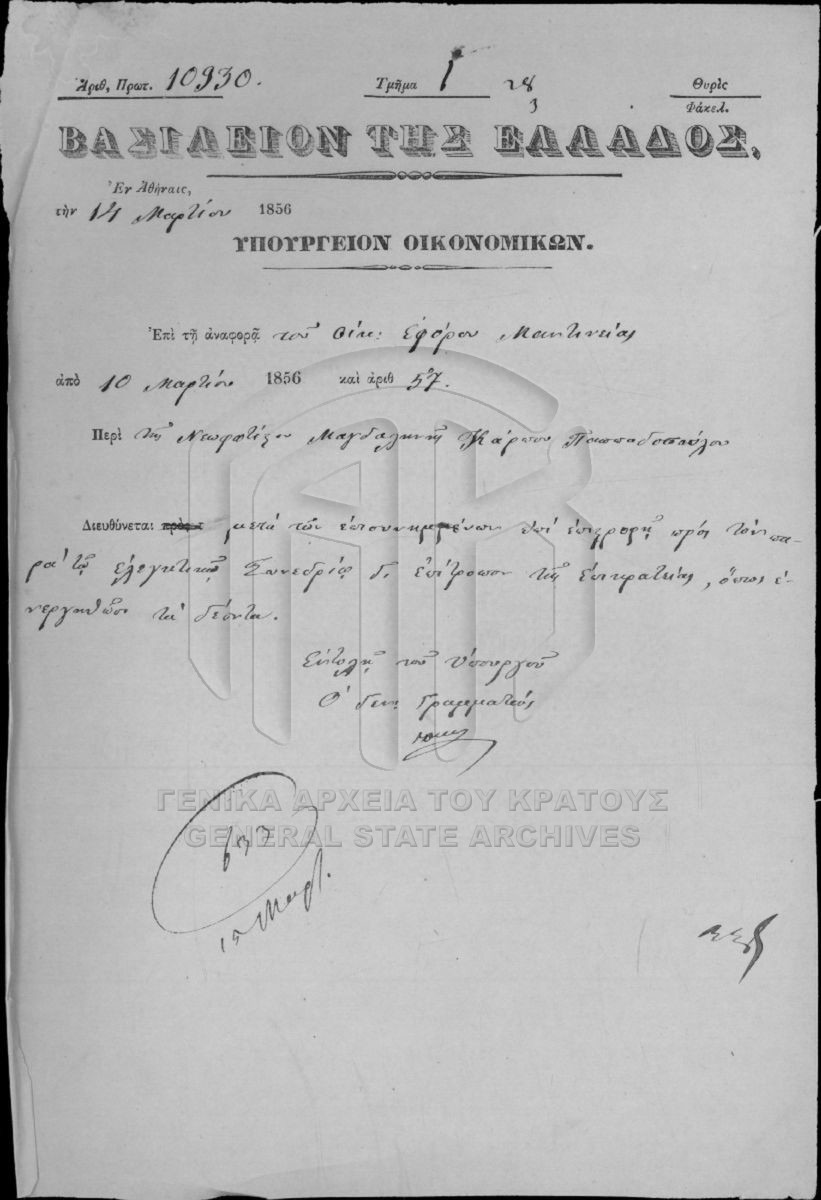 Ἀριθ. Πρωτ. 10930. Τμῆμα Γ 28 Θυρὶς
3 Φάκελ.
ΒΑΣΙΛΕΙΟΝ ΤΗΣ ΕΛΛΑΔΟΣ,
Ἐν Ἀθήναις,
τὴν 14 Μαρτίου 1856
ΥΠΟΥΡΓΕΙΟΝ ΟΙΚΟΝΟΜΙΚΩΝ.
Ἐπὶ τῇ ἀναφορᾷ τοῦ Οἰκ: Ἐφόρου Μαντινείας
ἀπὸ 10 Μαρτίου 1856 καὶ ἀριθ 57.
Περὶ τῆς Νεωφωτίστου Μαγδαληνῆς Κάρπου Παππαδοπούλου
Διευθύνεται μετὰ τῶν ἐπισυνημμένων ἐπὶ ἐπιστροφῇ πρὸς τὸν πα-
ρὰ τῷ ἐλεγκτικῷ Συνεδρίῳ ἐπίτροπον τῆς ἐπικρατείας, ὅπως ἐ-
νεργηθῶσι τὰ δέοντα.
Ἐντολῇ τοῦ Ὑπουργοῦ
Ὁ Γεν: Γραμματεύς
ΓΕΝΙΚΑ ΑΡΧΕΙΑ ΤΟΥ ΚΡΑΤΟΥΣ
GENERAL STATE ARCHIVES
633
15 Μαρτ.